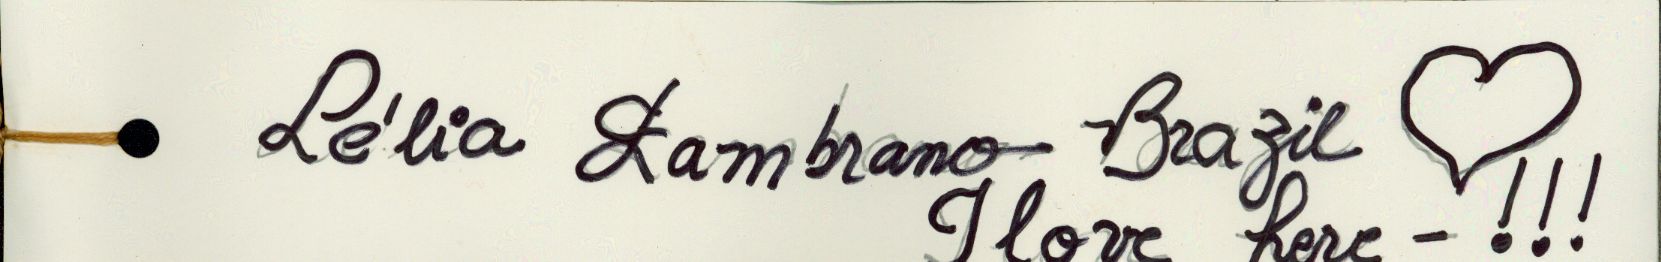 Lélia Zambrano - Brazil
I love here - !!!